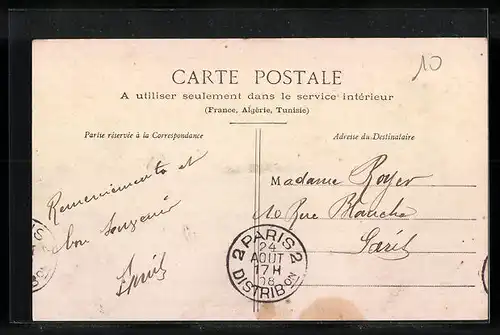 10
CARTE POSTALE
A utiliser seulement dans le service intérieur
(France, Algérie, Tunisie)
Partie réservée à la Correspondance
Adresse du Destinataire
Remerciements et
bon souvenir
Madame Royer
10 Rue Blanche
Paris
2 PARIS 2
24
AOUT
17 H
08
DISTRIBON